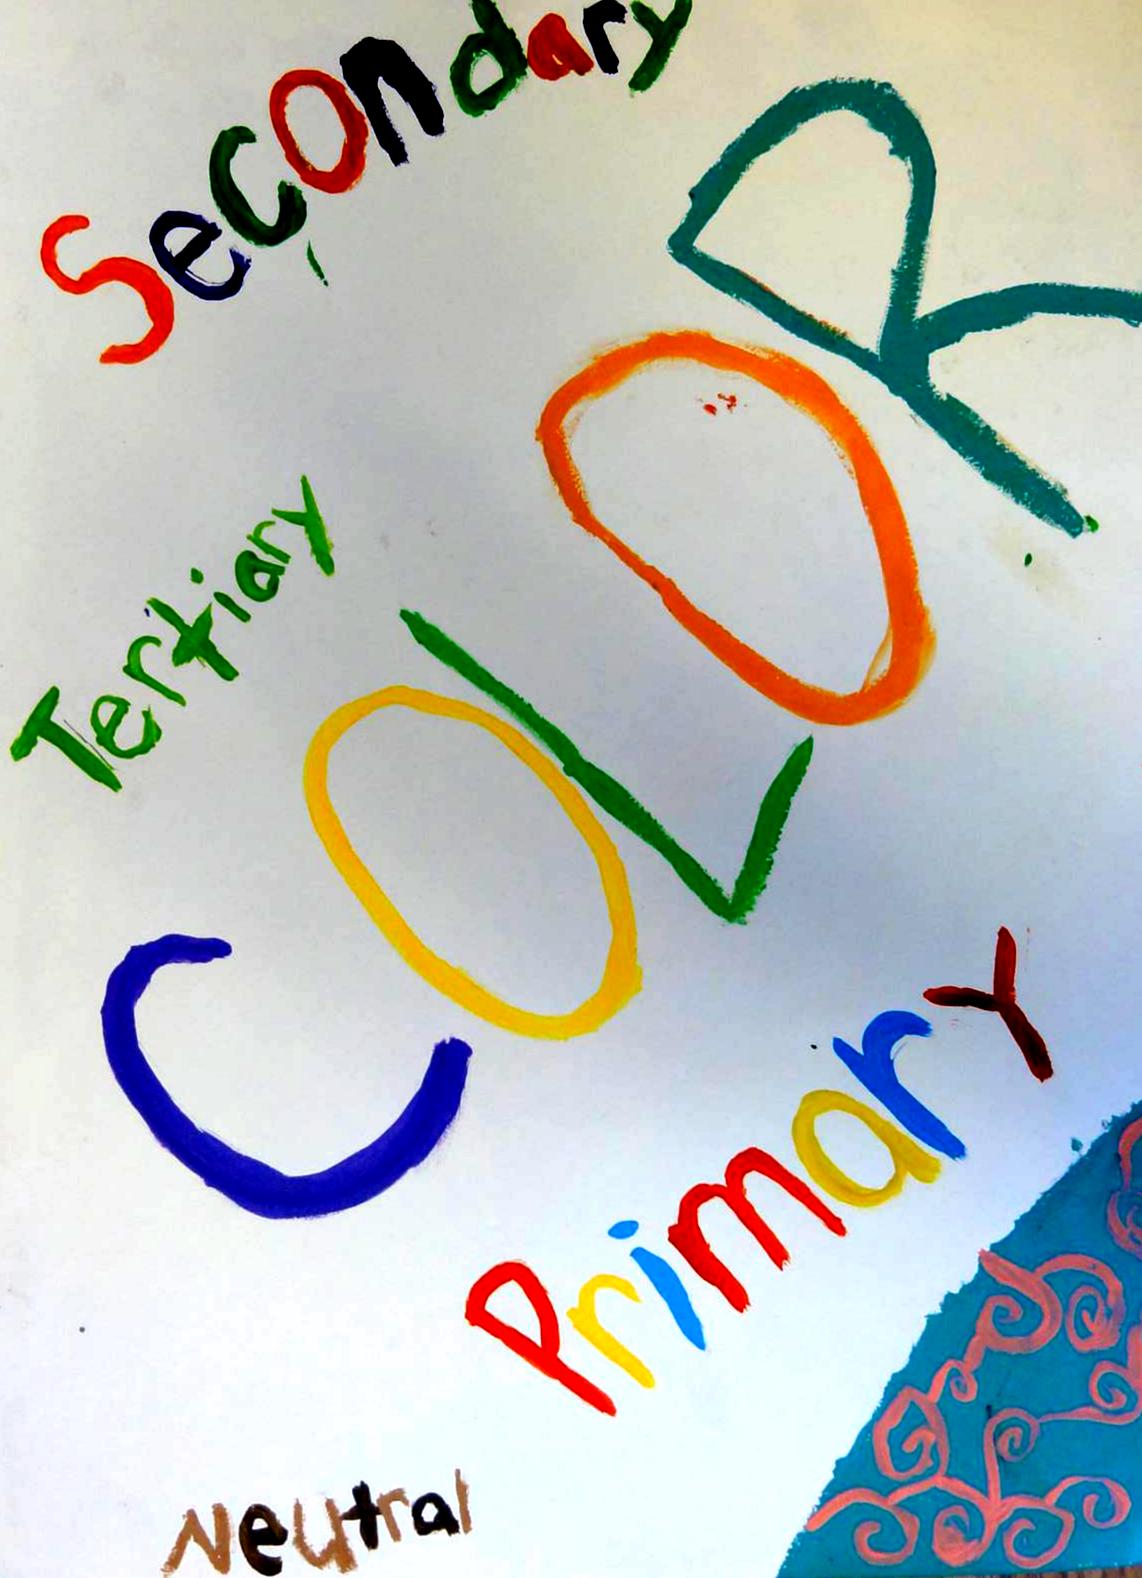 Secondary
COLOR
Tertiary
Primary
Neutral